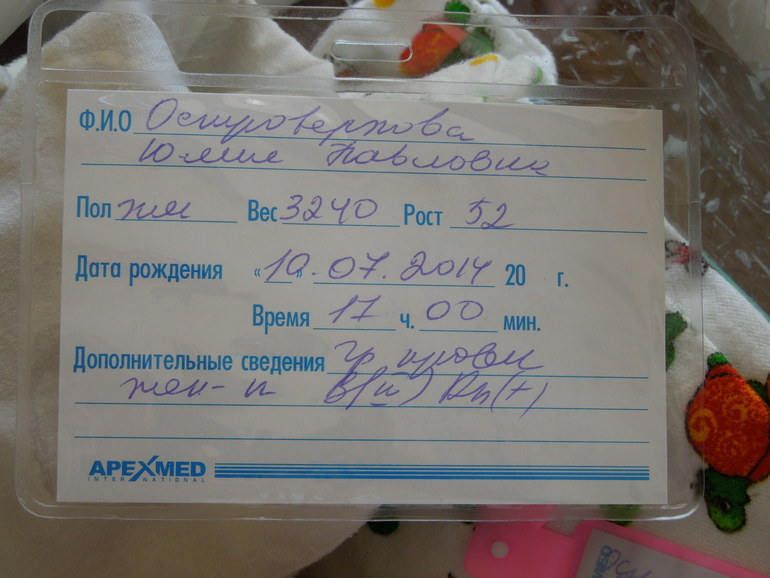 Ф.И.О Островерхова
Юлия Павловна
Пол жен Вес 3240 Рост 52
Дата рождения «10».07.2014 20 г.
Время 17 ч. 00 мин.
Дополнительные сведения гр крови
В(III) Rh(+)
APEXMED
INTERNATIONAL